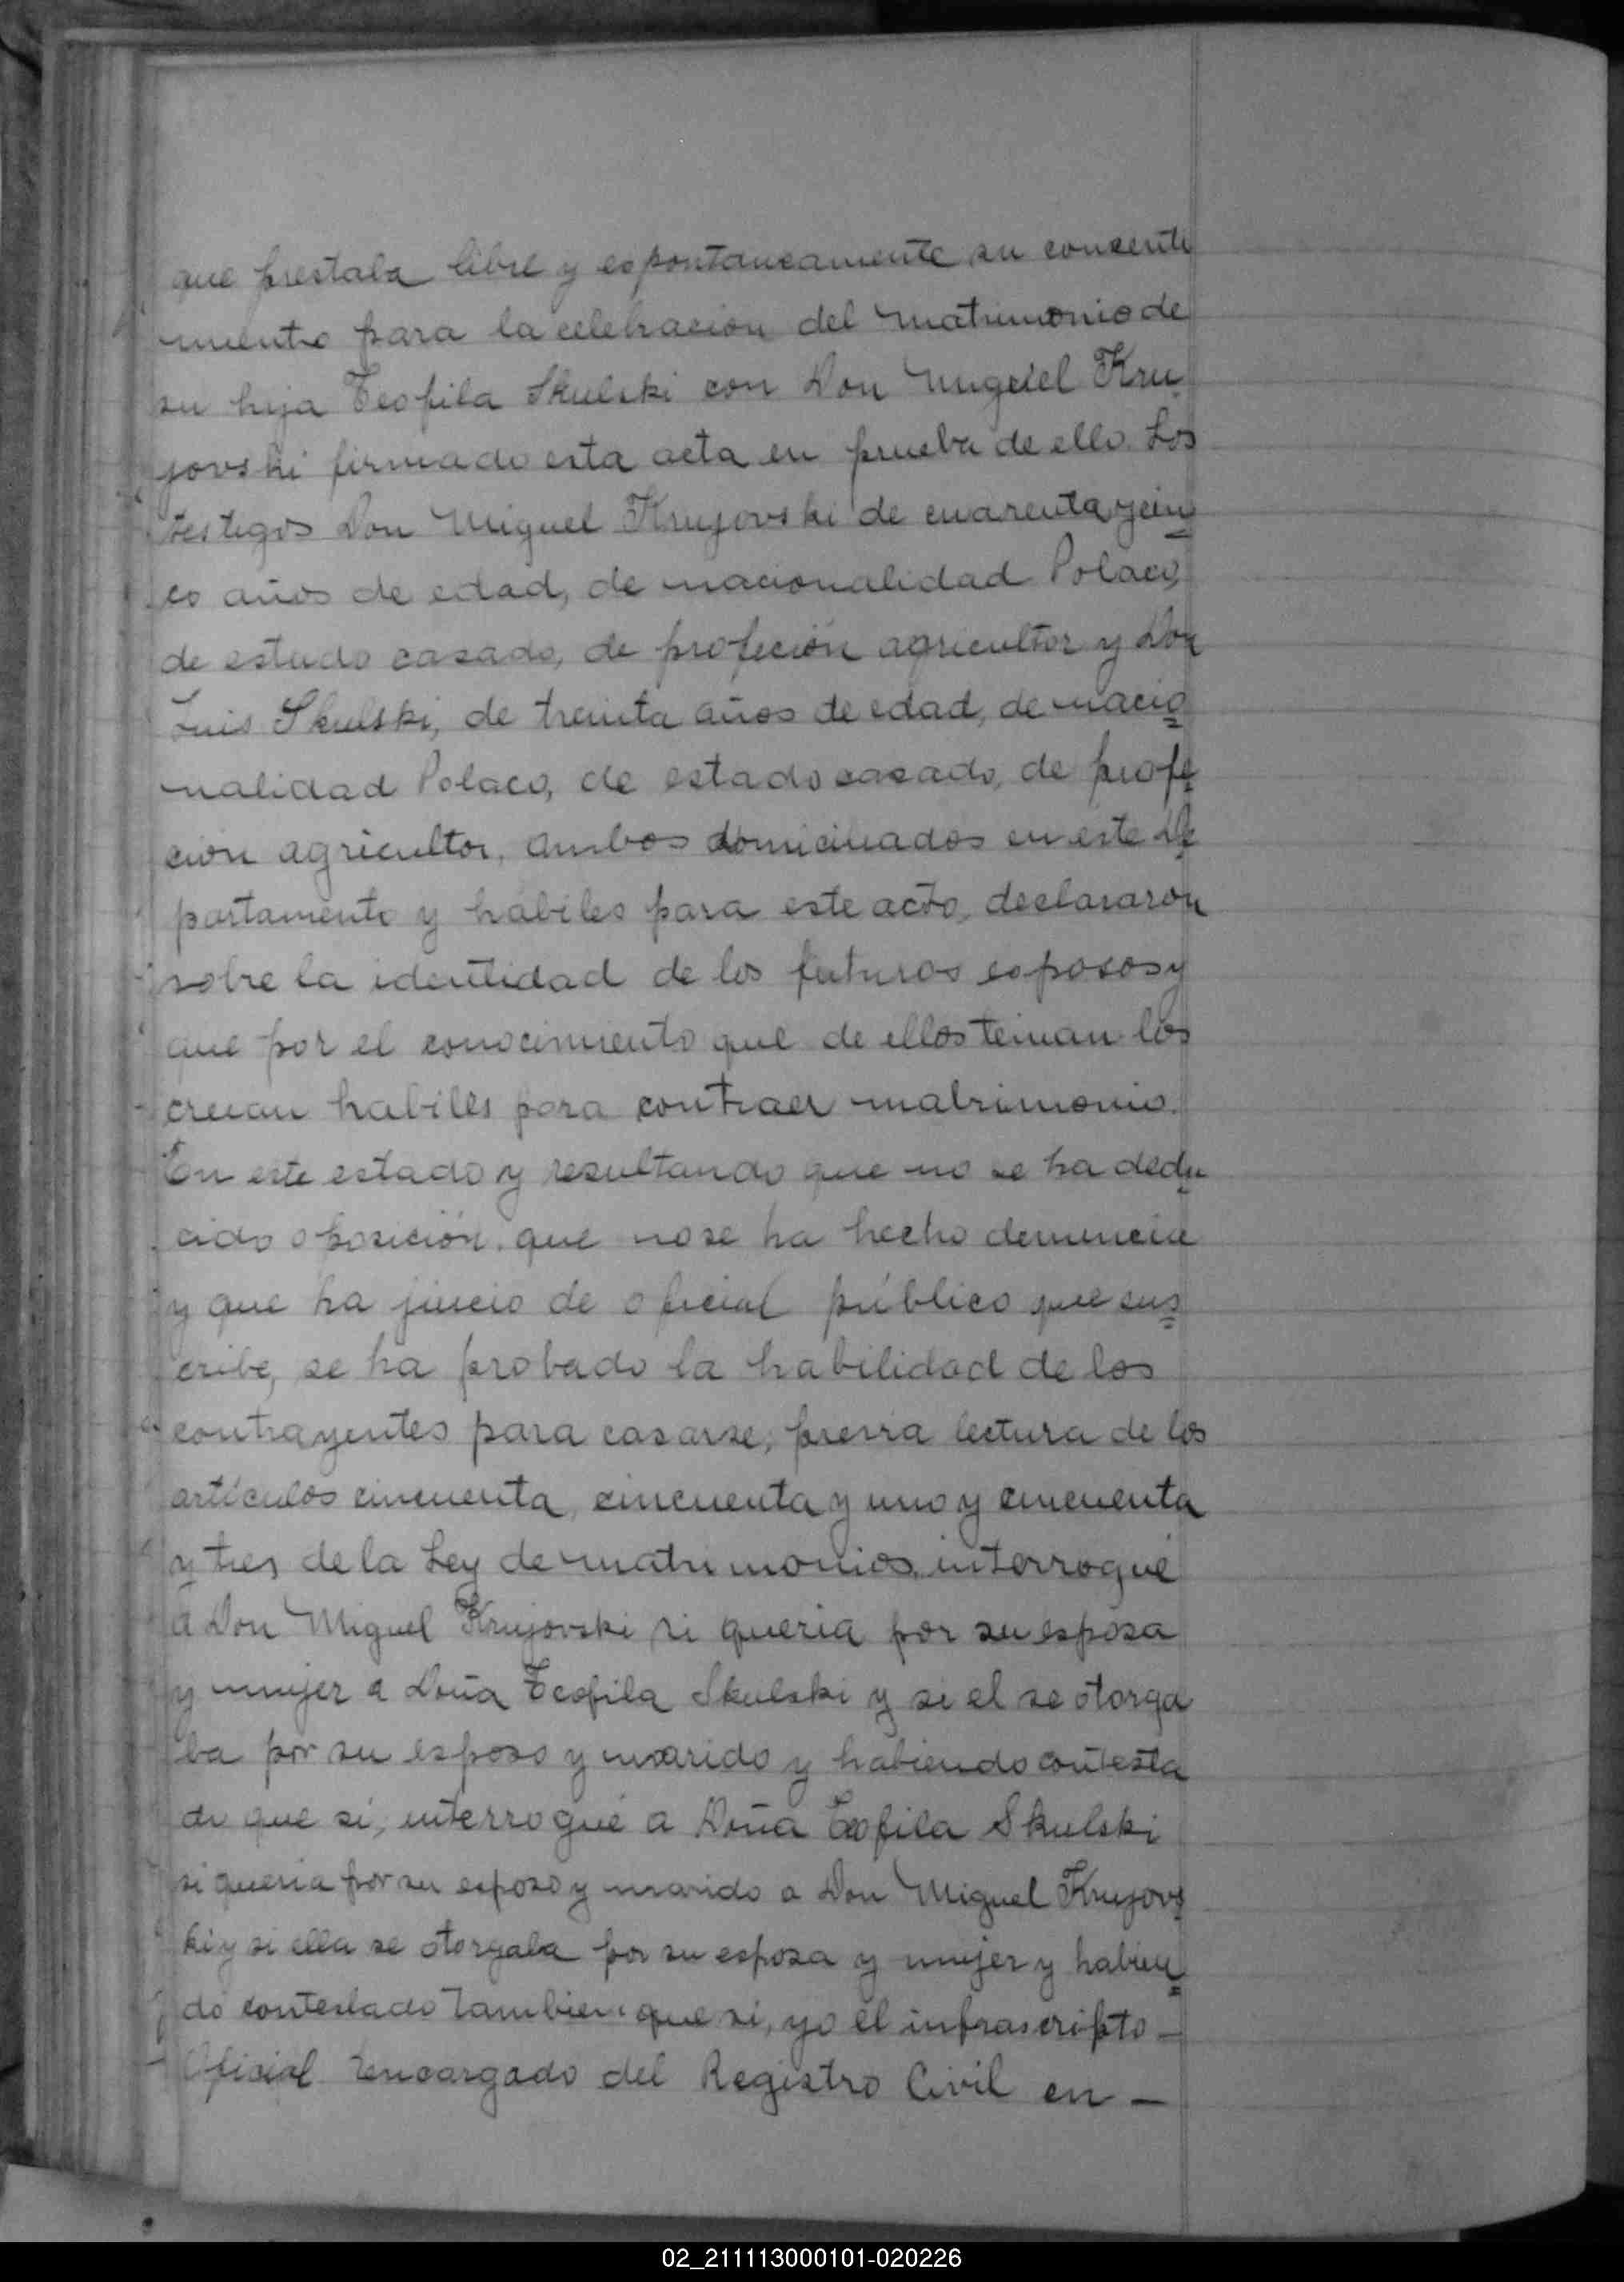 que prestaba libre y espontaneamente su consenti
miento para la celebracion del matrimonio de
su hija Teofila Skulski con Don Miguel Kru
jovski firmado esta acta en prueba de ello. Los
testigos Don Miguel Krujovski de cuarenta y cin
co años de edad, de nacionalidad Polaco,
de estado casado, de profeción agricultor y Don
Luis Skulski, de treinta años de edad, de nacio
nalidad Polaco, de estado casado, de profe
cion agricultor, ambos domiciliados en este De
partamento y hábiles para este acto, declararon
sobre la identidad de los futuros esposos y
que por el conocimiento que de ellos teinan los
creian habiles para contraer matrimonio.
En este estado y resultando que no se ha dedu
cido oposición, que no se ha hecho denuncia
y que ha juicio de oficial público que sus
cribe, se ha probado la habilidad de los
contrayentes para casarse; previa lectura de los
artículos cincuenta, cincuenta y uno y cincuenta
y tres de la Ley de matrimonios, interrogué
a Don Miguel Krujovski si queria por su esposa
y mujer a Doña Teofila Skulski y si el se otorga
ba por su esposo y marido y habiendo contesta
do que si, interrogué a Doña Teofila Skulski
si queria por su esposo y marido a Don Miguel Krujovs
ki y si ella se otorgaba por su esposa y mujer y habien
do contestado tambien que si, yo el infrascripto —
Oficial encargado del Registro Civil en —
02_211113000101-020226